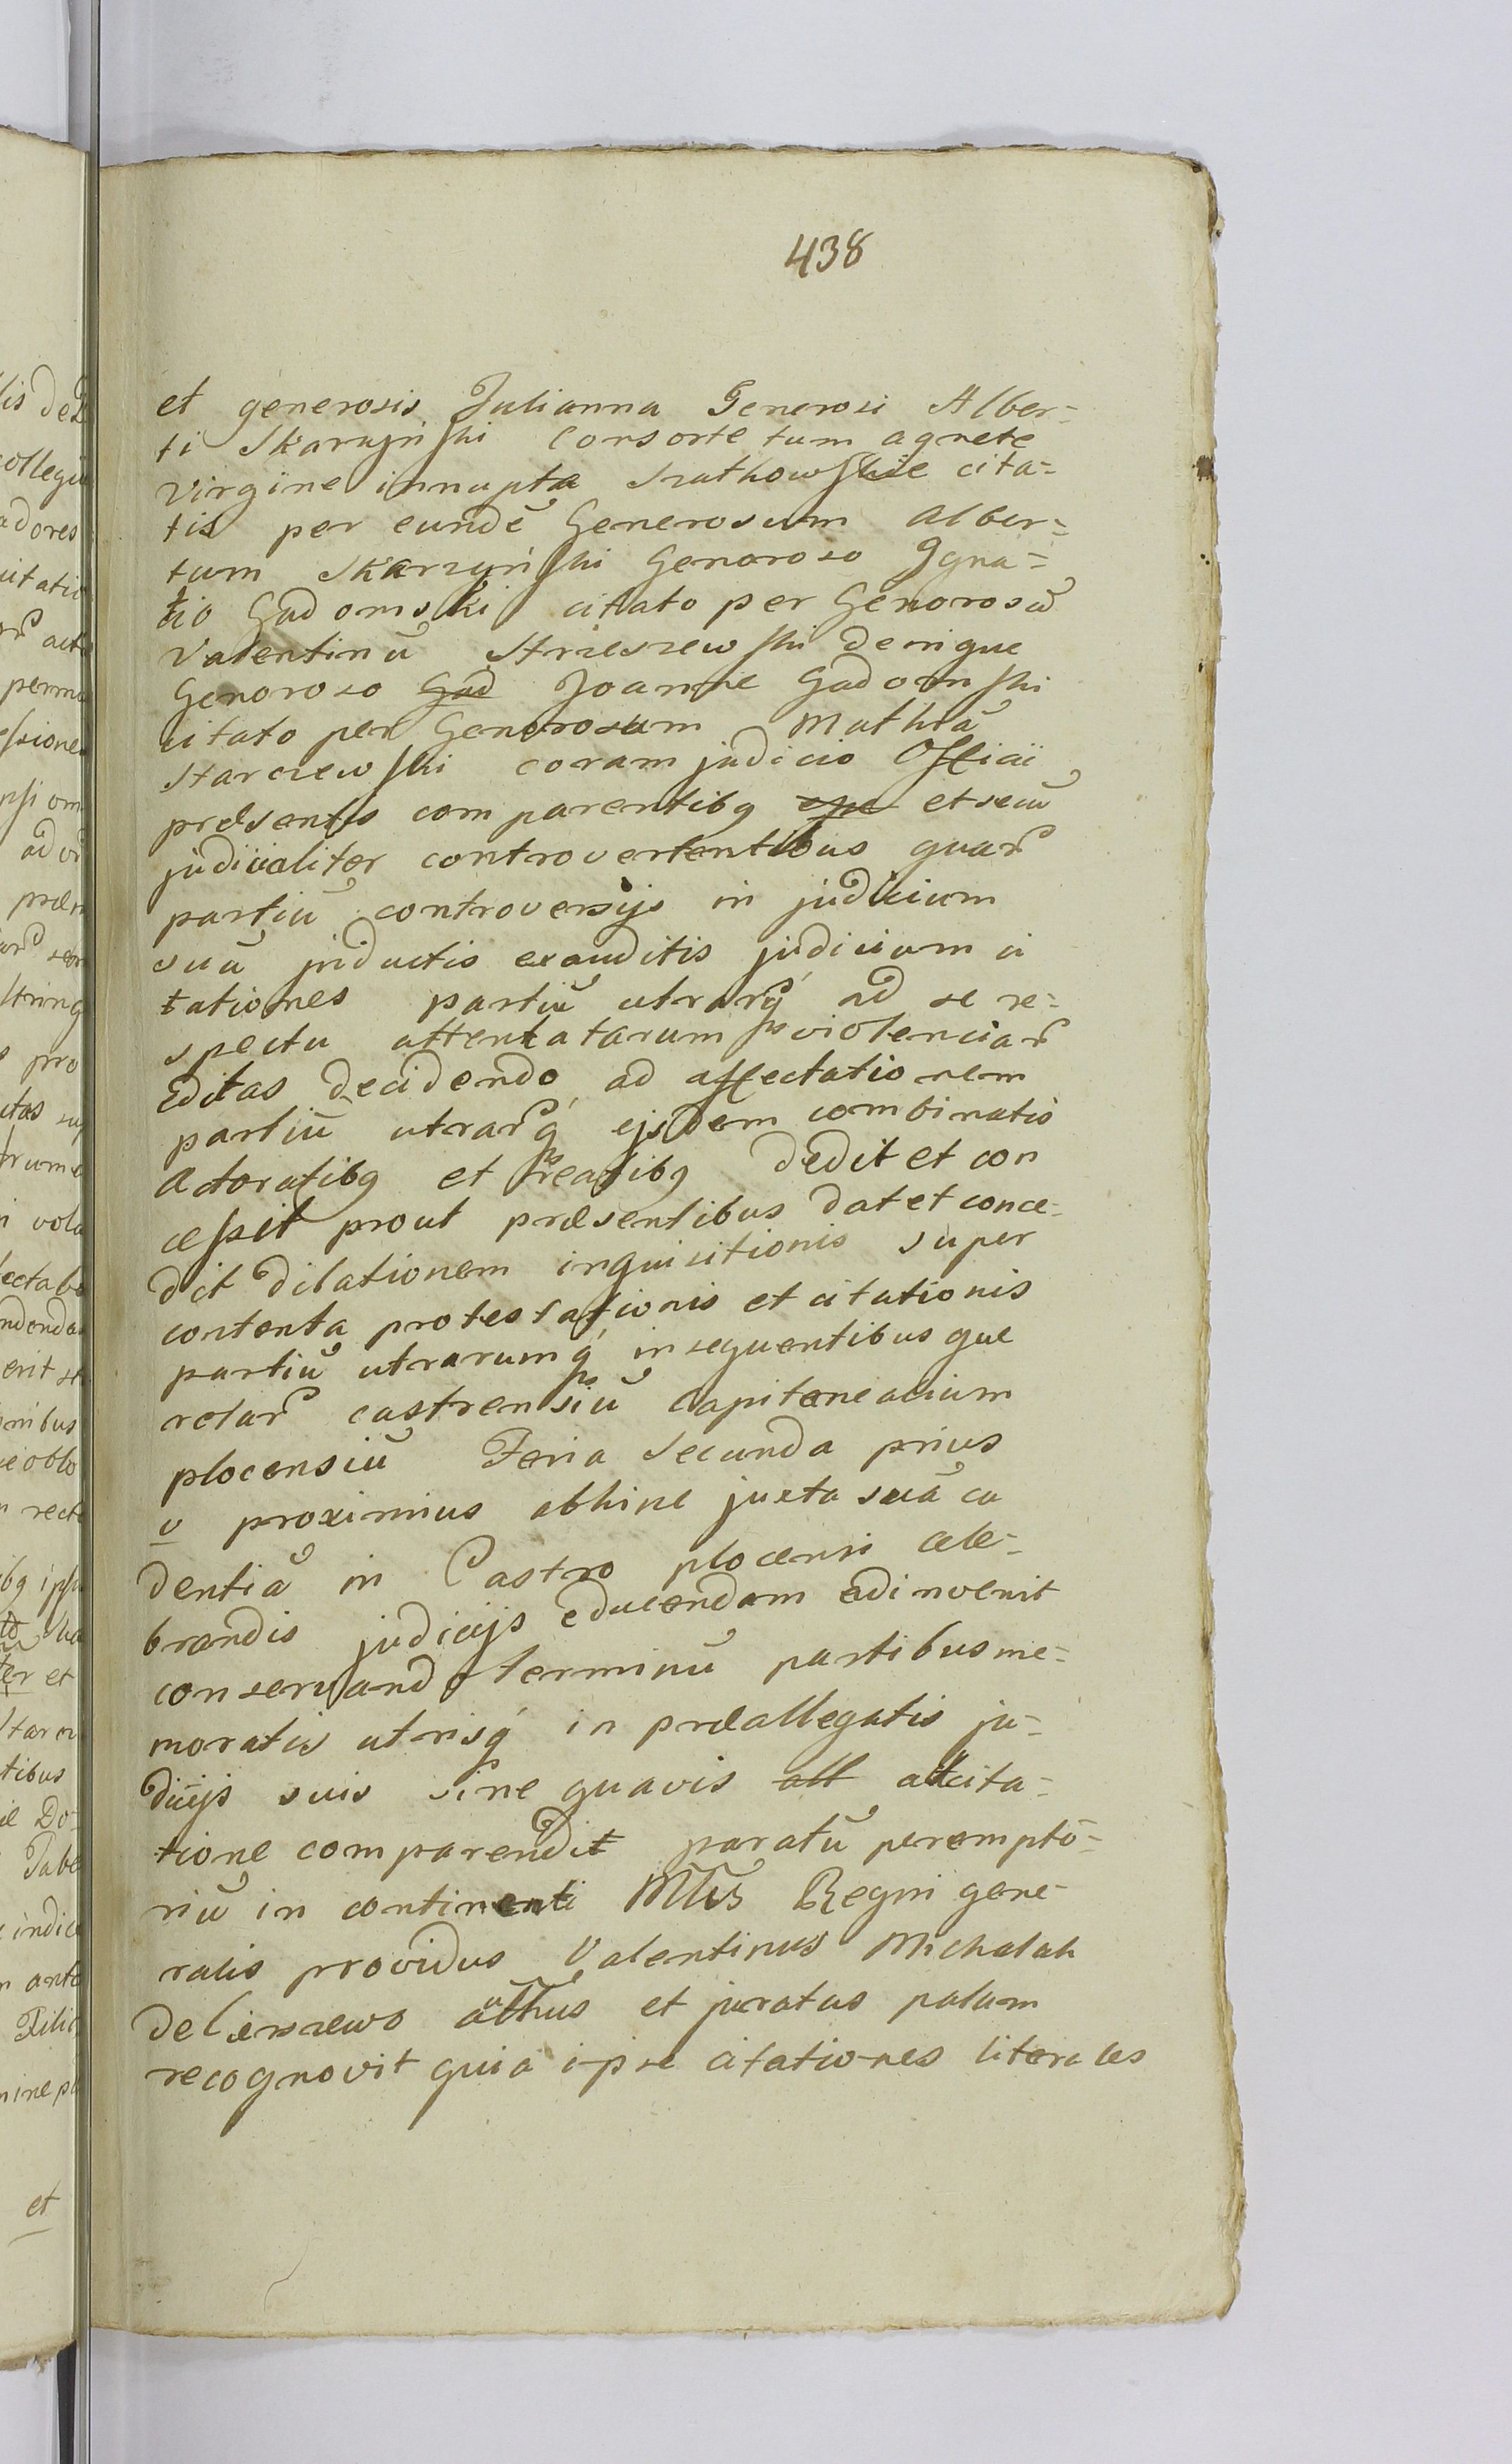 438
et generosis Julianna Generosi Alber-
ti Skarzyński Consorte tum agnete
virgine innupta Szutkowskie cita-
tis per eundē Generosum Alber-
tum Skarzyński Generoso Igna-
tio Gadomski citato per Generosū
Valentinū Strzeszewski denique
Generoso Gad Joanne Gadomski
citato per Generosum Mathiā
Starczewski coram judicio Officii
præsentis comparentibq et secū
judicialiter controvertentibus quar
partiū controversijs in judicium
suū inductis exauditis judicium ci
tationes partiū utrarq ad se re-
spectu attentatarum violenciar
editas decidendo, ad affectationem
partiū utrarq ejsdem combinatis
Actoratibq et reatibq dedit et con
cessit prout præsentibus dat et conce-
dit dilationem inquisitionis super
contenta protestationis et citationis
partiū utrarumq in sequentibus que
relar castrensiū Capitenealium
plocensiū Feria Secunda prius
v proximius abhinc juxta suā ca
dentiā in Castro plocensi cele-
brandis judicijs educendam adinvenit
conservando terminū partibus me-
moratis utrisq in præallegatis ju-
dicijs suis sine quavis all adcita-
tione comparendi paratū perempto-
riū in continenti Mtis Regni gene-
ralis providus Valentinus Michalak
de Lieszewo aūthus et juratus palam
recognovit quia ipse citationes literales
lis de
collegii
adores
itatio
acta
perma
ssiones
om
ad
præm
seor
string
pro
rum
vola
ectabo
ndenda
erit
nibus
oblo
recto
ibq
et
tibus
Do-
Tabe
indic
ante
Filio
et